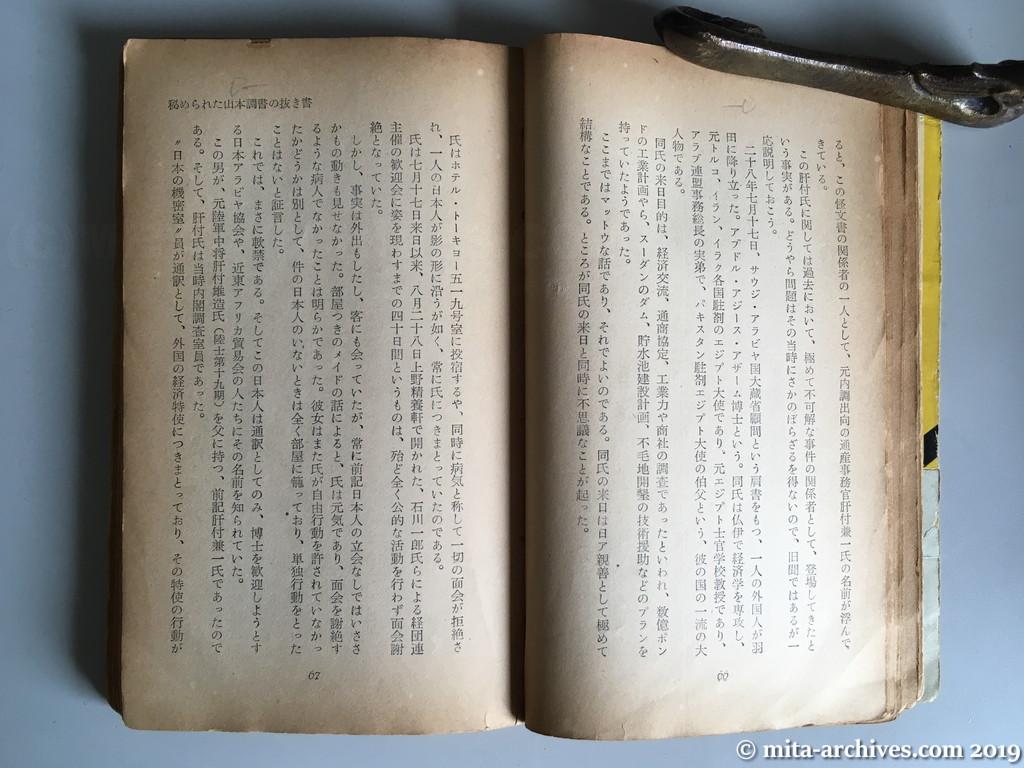 ると、この怪文書の関係者の一人として、元内調出向の通産事務官肝付兼一氏の名前が浮んで
きている。
この肝付氏に関しては過去において、極めて不可解な事件の関係者として、登場してきたと
いう事実がある。どうやら問題はその当時にさかのぼらざるを得ないので、旧聞ではあるが一
応説明しておこう。
二十八年七月十七日、サウジ・アラビヤ国大蔵省顧問という肩書をもつ、一人の外国人が羽
田に降り立った。アブドル・アジース・アザーム博士という。同氏は仏伊で経済学を専攻し、
元トルコ、イラン、イラク各国駐剳のエジプト大使であり、元エジプト士官学校教授であり、
アラブ連盟事務総長の実弟で、パキスタン駐剳エジプト大使の伯父という、彼の国の一流の大
人物である。
同氏の来日目的は、経済交流、通商協定、工業力や商社の調査であったといわれ、数億ポン
ドの工業計画やら、スーダンのダム、貯水池建設計画、不毛地開墾の技術援助などのプランを
持っていたようであった。
ここまではマットウな話であり、それでよいのである。同氏の来日は日ア親善として極めて
結構なことである。ところが同氏の来日と同時に不思議なことが起った。
66
秘められた山本調書の抜き書
氏はホテル・トーキョー五一九号室に投宿するや、同時に病気と称して一切の面会が拒絶さ
れ、一人の日本人が影の形に沿うが如く、常に氏につきまとっていたのである。
氏は七月十七日来日以来、八月二十八日上野精養軒で開かれた、石川一郎氏らによる経団連
主催の歓迎会に姿を現わすまでの四十日間というものは、殆ど全く公的な活動を行わず面会謝
絶となっていた。
しかし、事実は外出もしたし、客にも会っていたが、常に前記日本人の立会なしではいささ
かもの動きも見せなかった。部屋つきのメイドの話によると、氏は元気であり、面会を謝絶す
るような病人でなかったことは明らかであった。彼女はまた氏が自由行動を許されていなかっ
たかどうかは別として、件の日本人のいないときは全く部屋に籠っており、単独行動をとった
ことはないと証言した。
これでは、まさに軟禁である。そしてこの日本人は通訳としてのみ、博士を歓迎しようとす
る日本アラビヤ協会や、近東アフリカ貿易会の人たちにその名前を知られていた。
この男が、元陸軍中将肝付雄造氏（陸士第十九期）を父に持つ、前記肝付兼一氏であったので
ある。そして、肝付氏は当時内閣調査室員であった。
〃日本の機密室〃員が通訳として、外国の経済特使につきまとっており、その特使の行動が
67
© mita-archives.com 2019